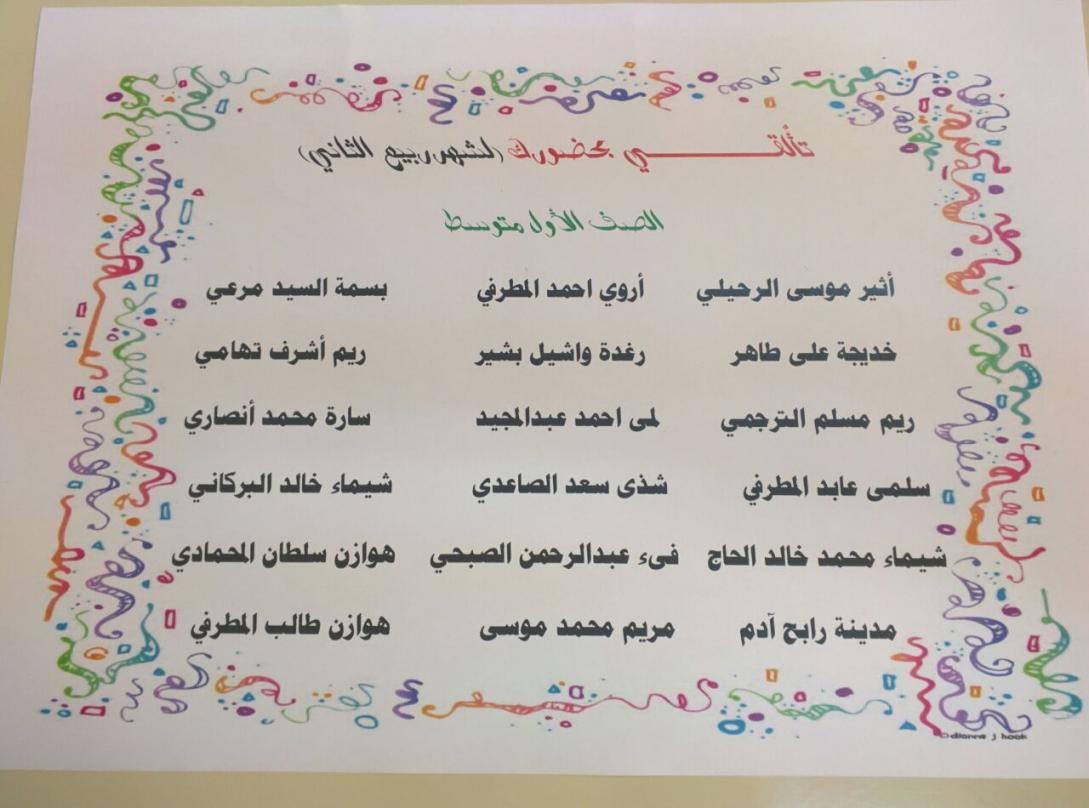 تألقـــــــي بحضورك (لشهر ربيع الثاني)
الصف الأول متوسط
أثير موسى الرحيلي أروي احمد المطرفي بسمة السيد مرعي
خديجة على طاهر رغدة واشيل بشير ريم أشرف تهامي
ريم مسلم الترجمي لمى احمد عبدالمجيد سارة محمد أنصاري
سلمى عابد المطرفي شذى سعد الصاعدي شيماء خالد البركاني
شيماء محمد خالد الحاج فىء عبدالرحمن الصبحي هوازن سلطان المحمادي
مدينة رابح آدم مريم محمد موسى هوازن طالب المطرفي
©dianne j hook